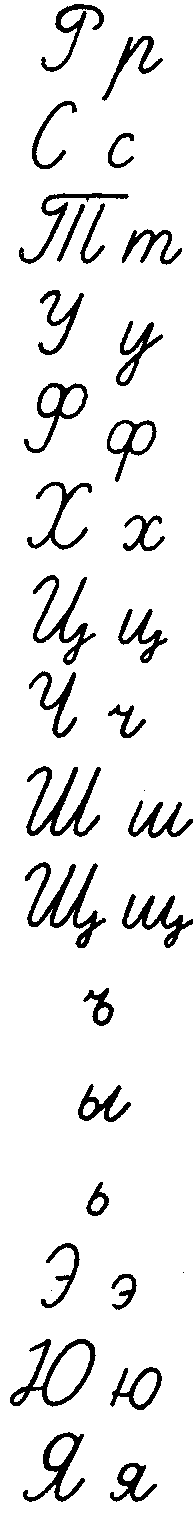 Р р
С с
Т т
У у
Ф ф
Х х
Ц ц
Ч ч
Ш ш
Щ щ
ъ
ы
ь
Э э
Ю ю
Я я